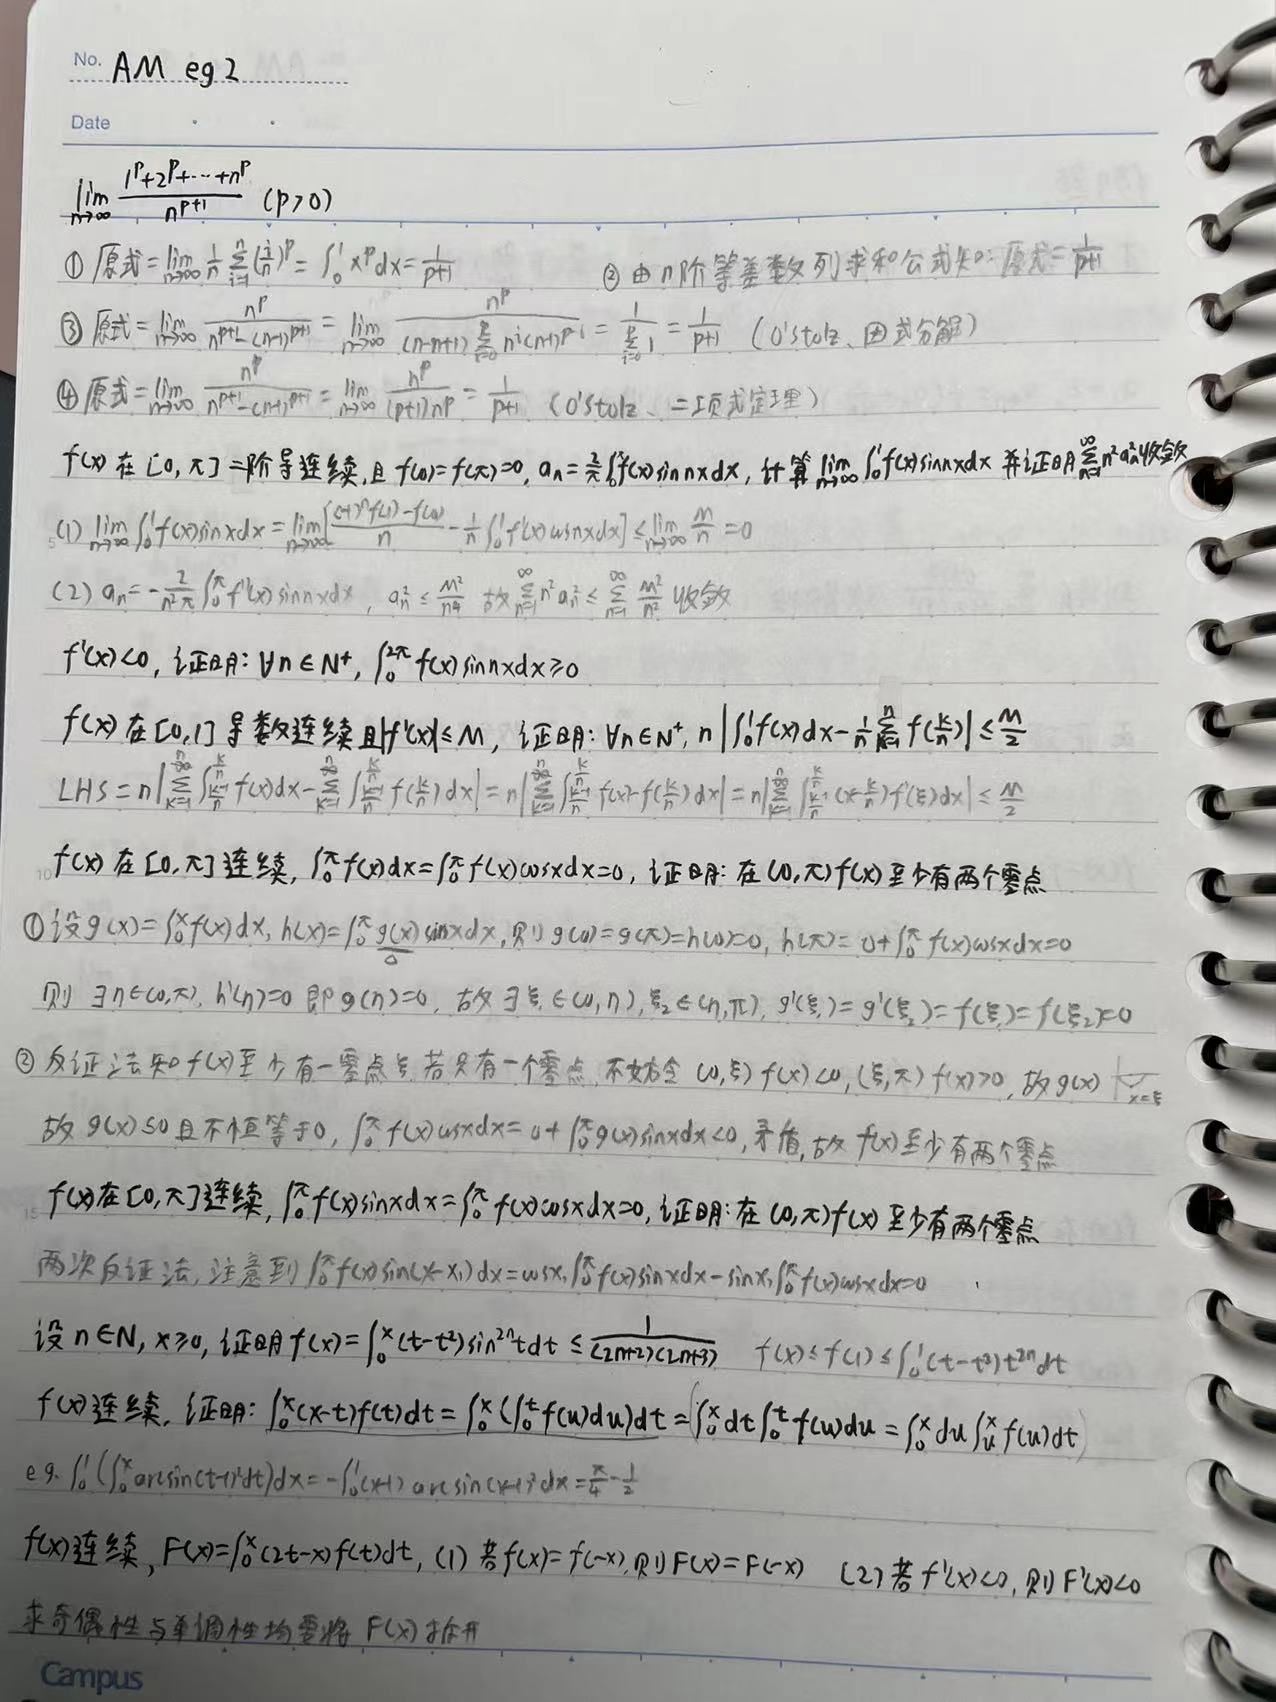 No. AM eg 2
Date
lim_{n→∞} (1^p+2^p+⋯+n^p)/n^{p+1} (p>0)
① 原式=lim_{n→∞} 1/n Σ_{i=1}^{n} (i/n)^p=∫_0^1 x^p dx=1/(p+1) ② 由n阶等差数列求和公式知:原式=1/(p+1)
③ 原式=lim_{n→∞} n^p/(n^{p+1}-(n-1)^{p+1})=lim_{n→∞} n^p/((n-n+1)Σ_{i=0}^{p} n^i(n-1)^{p-i})=1/(Σ_{i=0}^{p} 1)=1/(p+1) (O'Stolz、因式分解)
④ 原式=lim_{n→∞} n^p/(n^{p+1}-(n-1)^{p+1})=lim_{n→∞} n^p/((p+1)n^p)=1/(p+1) (O'Stolz、二项式定理)
f(x)在[0,π]二阶导连续,且f(0)=f(π)=0, a_n=2/π∫_0^π f(x)sin nxdx, 计算lim_{n→∞}∫_0^1 f(x)sinnxdx 并证明Σ_{n=1}^{∞} n²a_n²收敛
(1) lim_{n→∞}∫_0^1 f(x)sin xdx=lim_{n→∞}[((-1)^n f(1)-f(0))/n - 1/n∫_0^1 f'(x)cosnxdx]≤lim_{n→∞} M/n=0
(2) a_n=-2/(n²π)∫_0^π f''(x)sinnxdx, a_n²≤M²/n⁴ 故Σ_{n=1}^{∞} n²a_n²≤Σ_{n=1}^{∞} M²/n² 收敛
f'(x)<0, 证明:∀n∈N⁺, ∫_0^{2π} f(x)sinnxdx≥0
f(x)在[0,1]导数连续且|f'(x)|≤M, 证明:∀n∈N⁺, n|∫_0^1 f(x)dx-1/n Σ_{k=1}^{n} f(k/n)|≤M/2
LHS=n|Σ_{k=1}^{n}∫_{(k-1)/n}^{k/n} f(x)dx-Σ_{k=1}^{n}∫_{(k-1)/n}^{k/n} f(k/n)dx|=n|Σ_{k=1}^{n}∫_{(k-1)/n}^{k/n} f(x)-f(k/n)dx|=n|Σ_{k=1}^{n}∫_{(k-1)/n}^{k/n}(x-k/n)f'(ξ)dx|≤M/2
f(x)在[0,π]连续, ∫_0^π f(x)dx=∫_0^π f(x)cosxdx=0, 证明:在(0,π)f(x)至少有两个零点
①设g(x)=∫_0^x f(x)dx, h(x)=∫_0^π g(x)sinxdx, 则g(0)=g(π)=h(0)=0, h(π)=0+∫_0^π f(x)cosxdx=0
则 ∃η∈(0,π), h'(η)=0 即g(η)=0, 故∃ξ₁∈(0,η), ξ₂∈(η,π), g'(ξ₁)=g'(ξ₂)=f(ξ₁)=f(ξ₂)=0
② 反证法知f(x)至少有一零点ξ,若只有一个零点,不妨令(0,ξ)f(x)<0,(ξ,π)f(x)>0,故g(x) x=ξ
故g(x)≤0且不恒等于0, ∫_0^π f(x)cosxdx=0+∫_0^π g(x)sinxdx<0,矛盾,故f(x)至少有两个零点
f(x)在[0,π]连续, ∫_0^π f(x)sinxdx=∫_0^π f(x)cosxdx=0,证明:在(0,π)f(x)至少有两个零点
两次反证法,注意到∫_0^π f(x)sin(x-x₁)dx=cosx₁∫_0^π f(x)sinxdx-sinx₁∫_0^π f(x)cosxdx=0
设n∈N, x≥0, 证明f(x)=∫_0^x(t-t²)sin^{2n}tdt≤1/((2n+2)(2n+3)) f(x)≤f(1)≤∫_0^1(t-t²)t^{2n}dt
f(x)连续, 证明:∫_0^x(x-t)f(t)dt=∫_0^x(∫_0^t f(u)du)dt=(∫_0^x dt∫_0^t f(u)du=∫_0^x du∫_u^x f(u)dt)
eg. ∫_0^1(∫_0^x arcsin(t-1)²dt)dx=-∫_0^1(x-1)arcsin(x-1)²dx=π/4-1/2
f(x)连续, F(x)=∫_0^x(2t-x)f(t)dt, (1)若f(x)=f(-x),则F(x)=F(-x) (2)若f'(x)<0,则F'(x)<0
求奇偶性与单调性均要将F(x)拆开
Campus